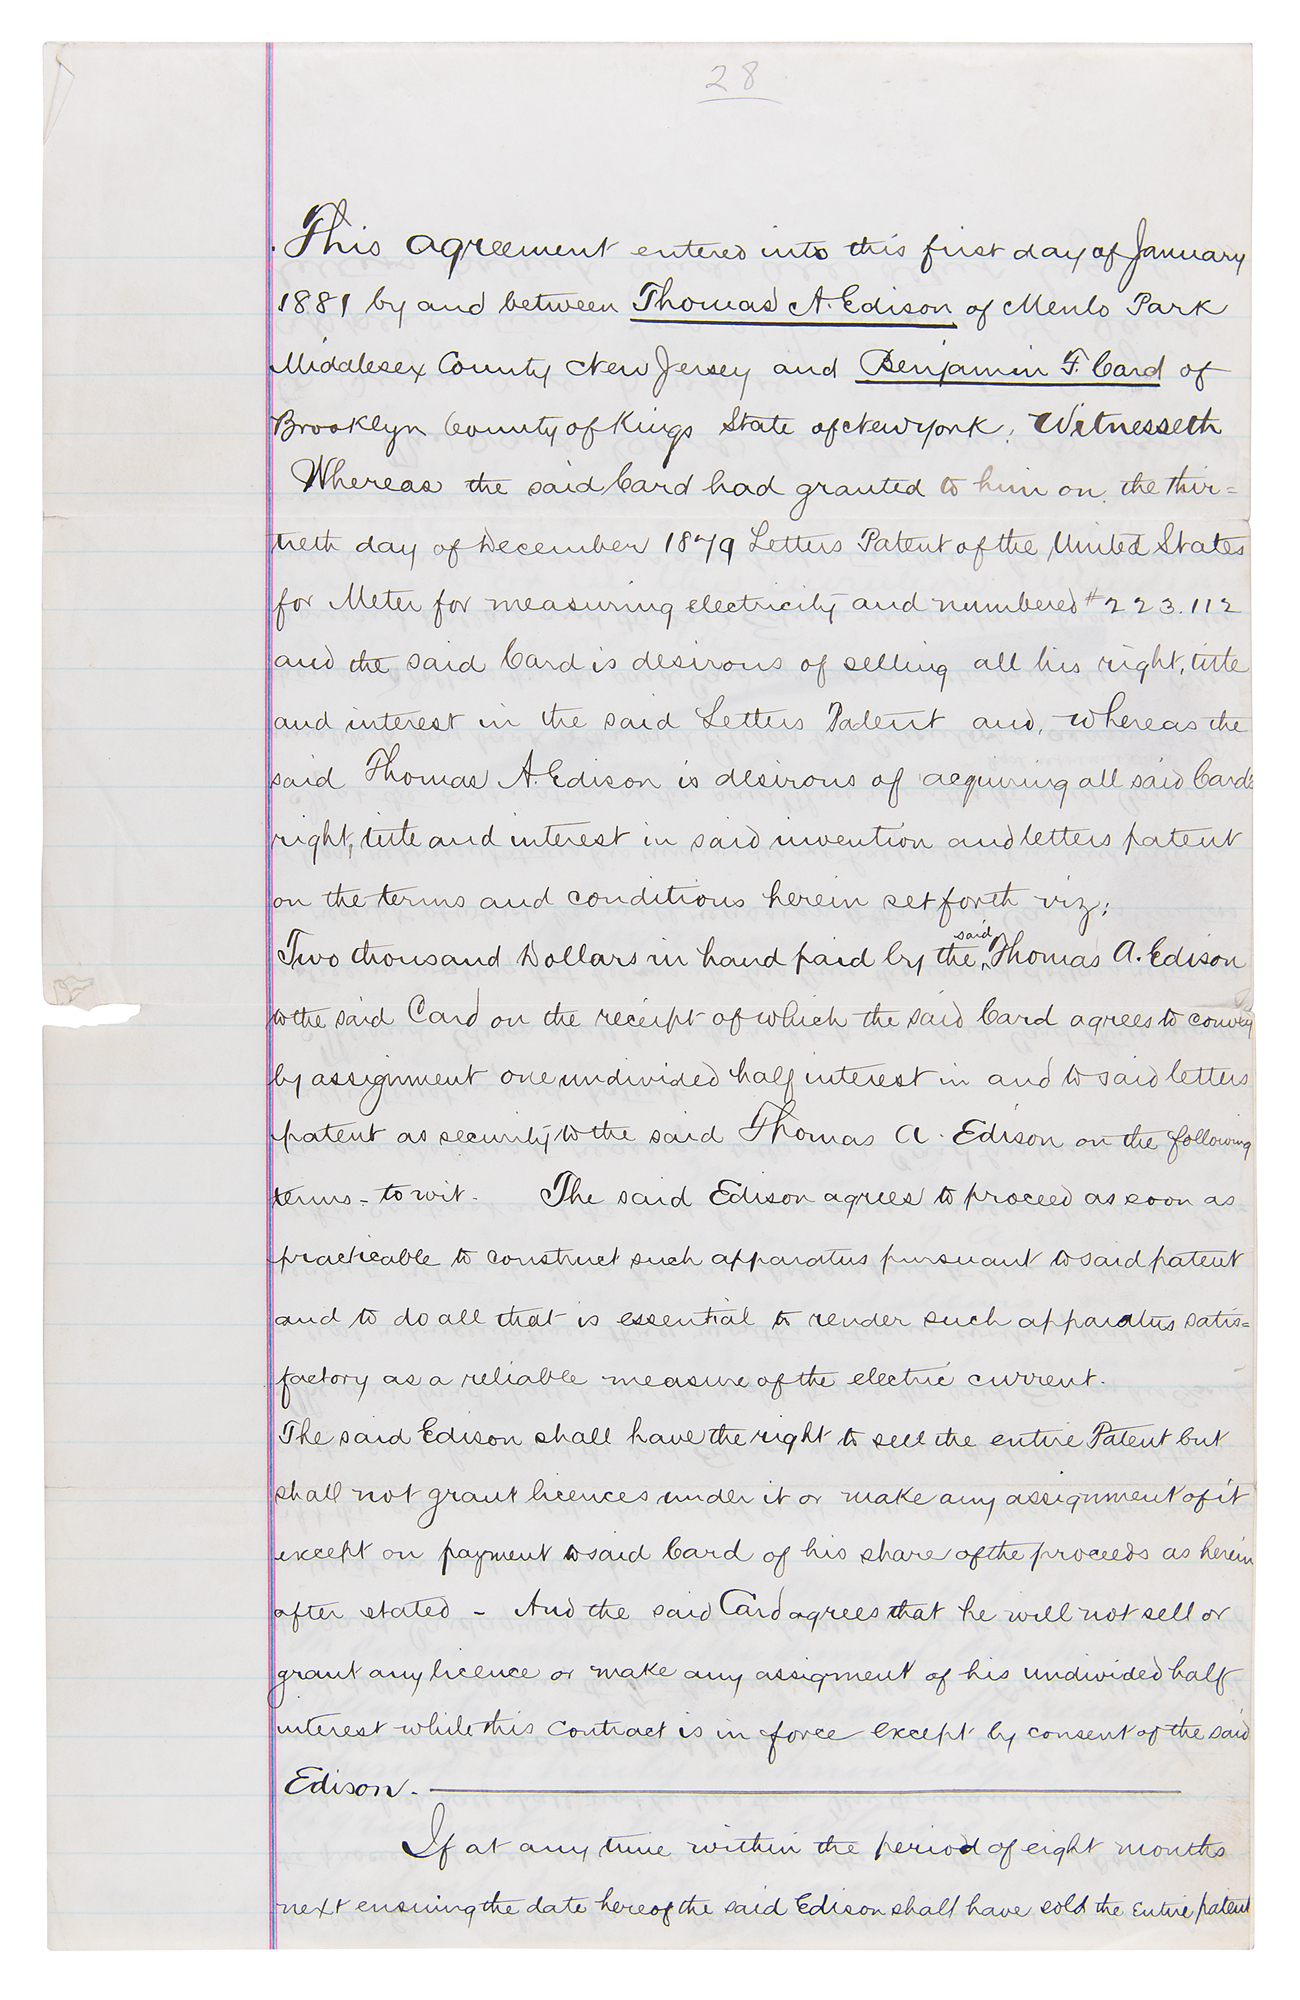 28
This agreement entered into this first day of January
1881 by and between Thomas A. Edison of Menlo Park
Middlesex County New Jersey and Benjamin F. Card of
Brooklyn County of Kings State of New York, Witnesseth
Whereas the said Card had granted to him on the thir=
tieth day of December 1879 Letters Patent of the United States
for Meter for measuring electricity and numbered #223.112
and the said Card is desirous of selling all his right, title
and interest in the said Letters Patent and, whereas the
said Thomas A. Edison is desirous of acquiring all said Card's
right, title and interest in said invention and letters patent
on the terms and conditions herein set forth viz;
Two thousand Dollars in hand paid by the said Thomas A. Edison
to the said Card on the receipt of which the said Card agrees to convey
by assignment one undivided half interest in and to said letters
patent as security to the said Thomas A. Edison on the following
terms - to wit. The said Edison agrees to proceed as soon as
practicable to construct such apparatus pursuant to said patent
and to do all that is essential to render such apparatus satis=
factory as a reliable measure of the electric current.
The said Edison shall have the right to sell the entire Patent but
shall not grant licences under it or make any assignment of it
except on payment to said Card of his share of the proceeds as herein
after stated - And the said Card agrees that he will not sell or
grant any licence or make any assigment of his undivided half
interest while this contract is in force except by consent of the said
Edison.
If at any time within the period of eight months
next ensuing the date hereof the said Edison shall have sold the entire patent